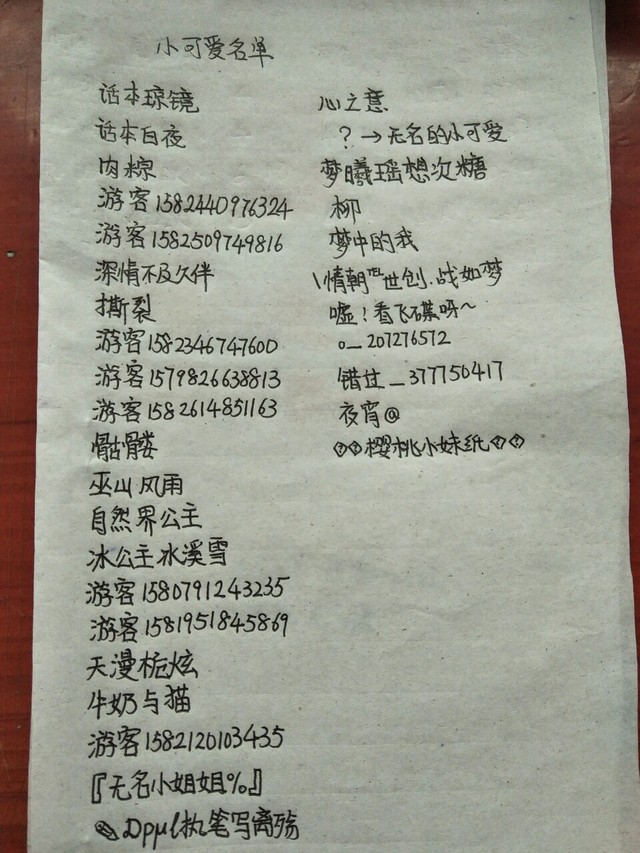 小可爱名单
话本琼镜
话本白夜
肉粽
游客1582440976324
游客1582509749816
深情不及久伴
撕裂
游客1582346747600
游客1579826638813
游客1582614851163
骷髅
巫山风雨
自然界公主
冰公主水溪雪
游客1580791243235
游客1581951845869
天漫栀炫
牛奶与猫
游客1582120103435
『无名小姐姐%』
✎Dpμl执笔写离殇
心之意
？→无名的小可爱
梦曦瑶想次糖
柳
梦中的我
\情朝世创.战如梦
嘘！看飞碟呀～
o_207276572
错过_377750417
夜宵@
樱桃小妹纸